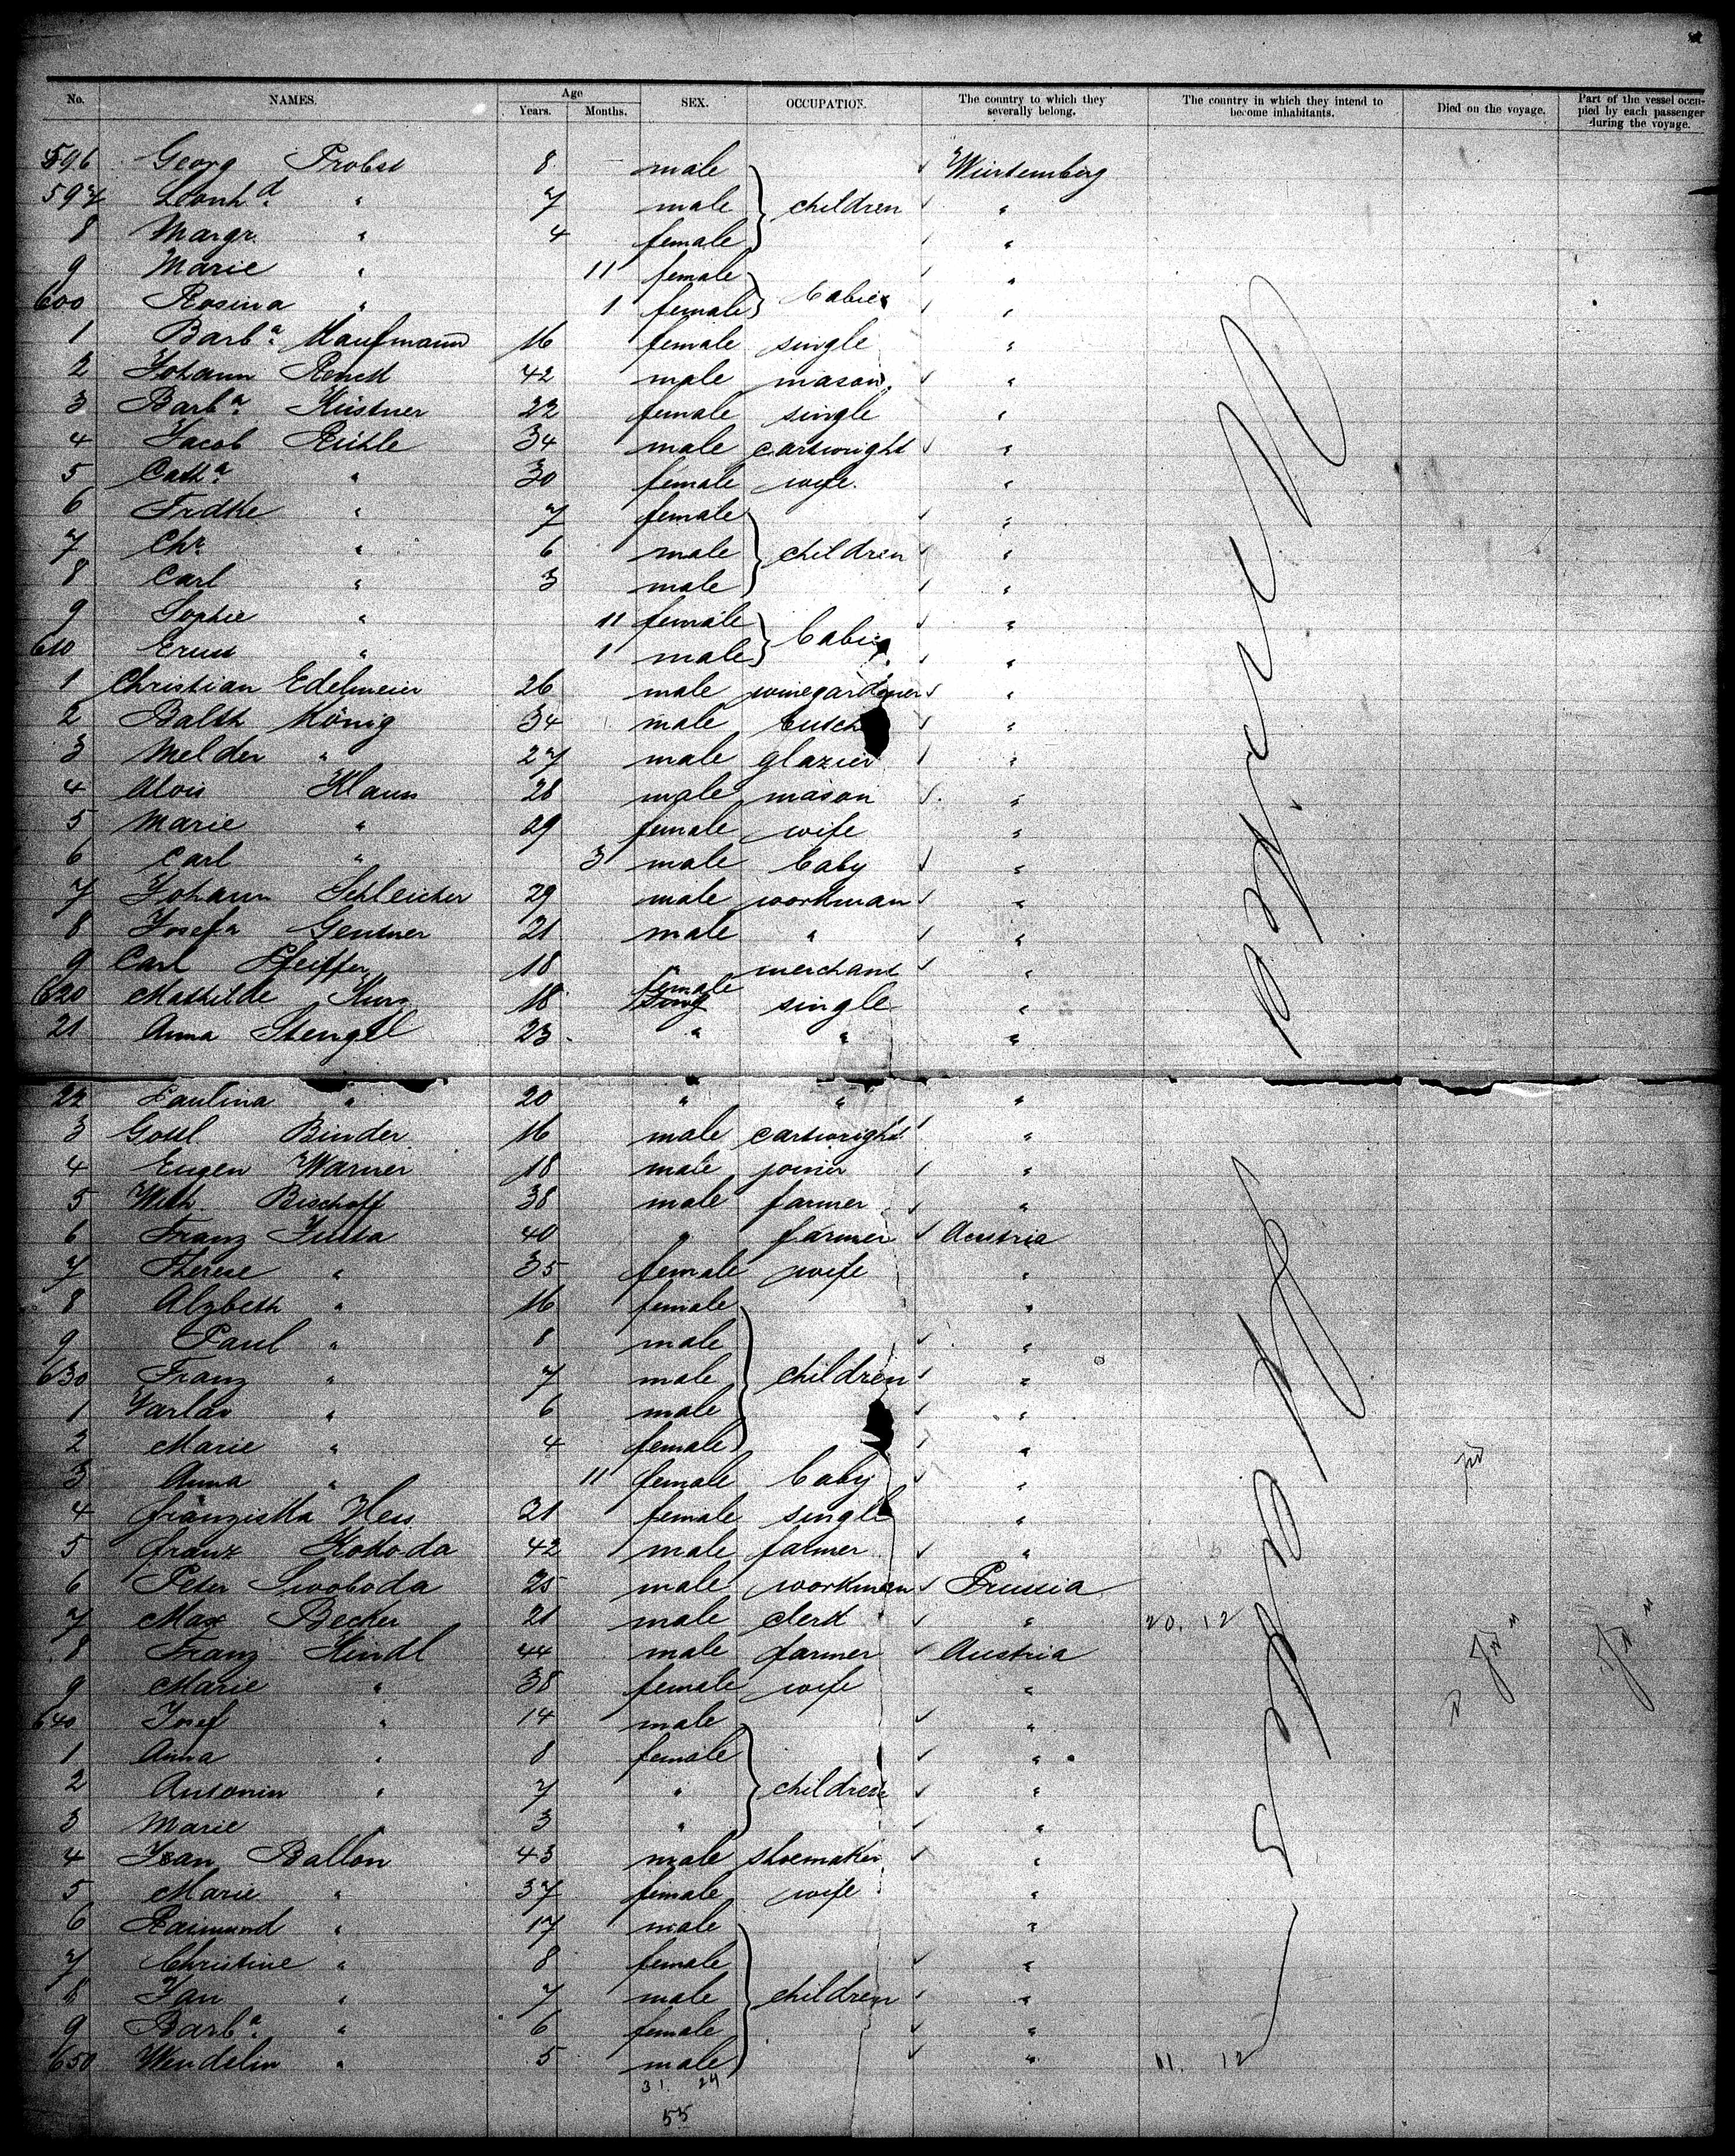 No. NAMES. Age Years. Months. SEX. OCCUPATION. The country to which they severally belong. The country in which they intend to become inhabitants. Died on the voyage. Part of the vessel occupied by each passenger during the voyage.
596 Georg Probst 8 male Würtemberg
597 Leonhd. " 7 male children "
8 Margr. " 4 female "
9 Marie " 11 female "
600 Rosina " 1 female babies "
1 Barba. Kaufmann 16 female single "
2 Johann 42 male mason "
3 Barba. Küstner 22 female single "
4 Jacob Rühle 34 male cartwright "
5 Catha. " 30 female wife "
6 Frdke " 7 female "
7 Chr. " 6 male children "
8 Carl " 3 male "
9 Sophie " 11 female "
610 Ernst " 1 male babies "
1 Christian Edelmeier 26 male winegardener "
2 Balth König 34 male "
3 Melder " 27 male glazier "
4 Alois Klaus 28 male mason "
5 Marie " 29 female wife "
6 Carl " 3 male baby "
7 Johann Schleicher 29 male workman "
8 Josef Gentner 21 male " "
9 Carl Pfeiffer 18 " merchant "
620 Mathilde Kurz 18 female single "
21 Anna Stengel 23 " " "
22 Paulina " 20 " " "
3 Gottl. Binder 16 male cartwright "
4 Eugen Warner 18 male joiner "
5 Wilh. Bischoff 38 male farmer "
6 Franz 40 " farmer Austria
7 Therese " 35 female wife "
8 Alzbeth " 16 female "
9 Paul " 8 male "
630 Franz " 7 male children "
1 " 6 male "
2 Marie " 4 female "
3 Anna " 11 female baby "
4 Franziska Hess 21 female single "
5 Franz Kohoda 42 male farmer "
6 Peter Swoboda 25 male workman Prussia
7 Max Becker 21 male clerk " 20. 12
8 Franz Hindl 44 male farmer Austria
9 Marie " 38 female wife "
640 Josef " 14 male "
1 Anna " 8 female "
2 Antonin " 7 " children "
3 Marie " 3 " "
4 Jean Ballon 43 male shoemaker "
5 Marie " 37 female wife "
6 Raimund " 17 male "
7 Christine " 8 female "
8 Jan " 7 male children "
9 Barba. " 6 female "
650 Wendelin " 5 male " 11. 12
31. 24
55